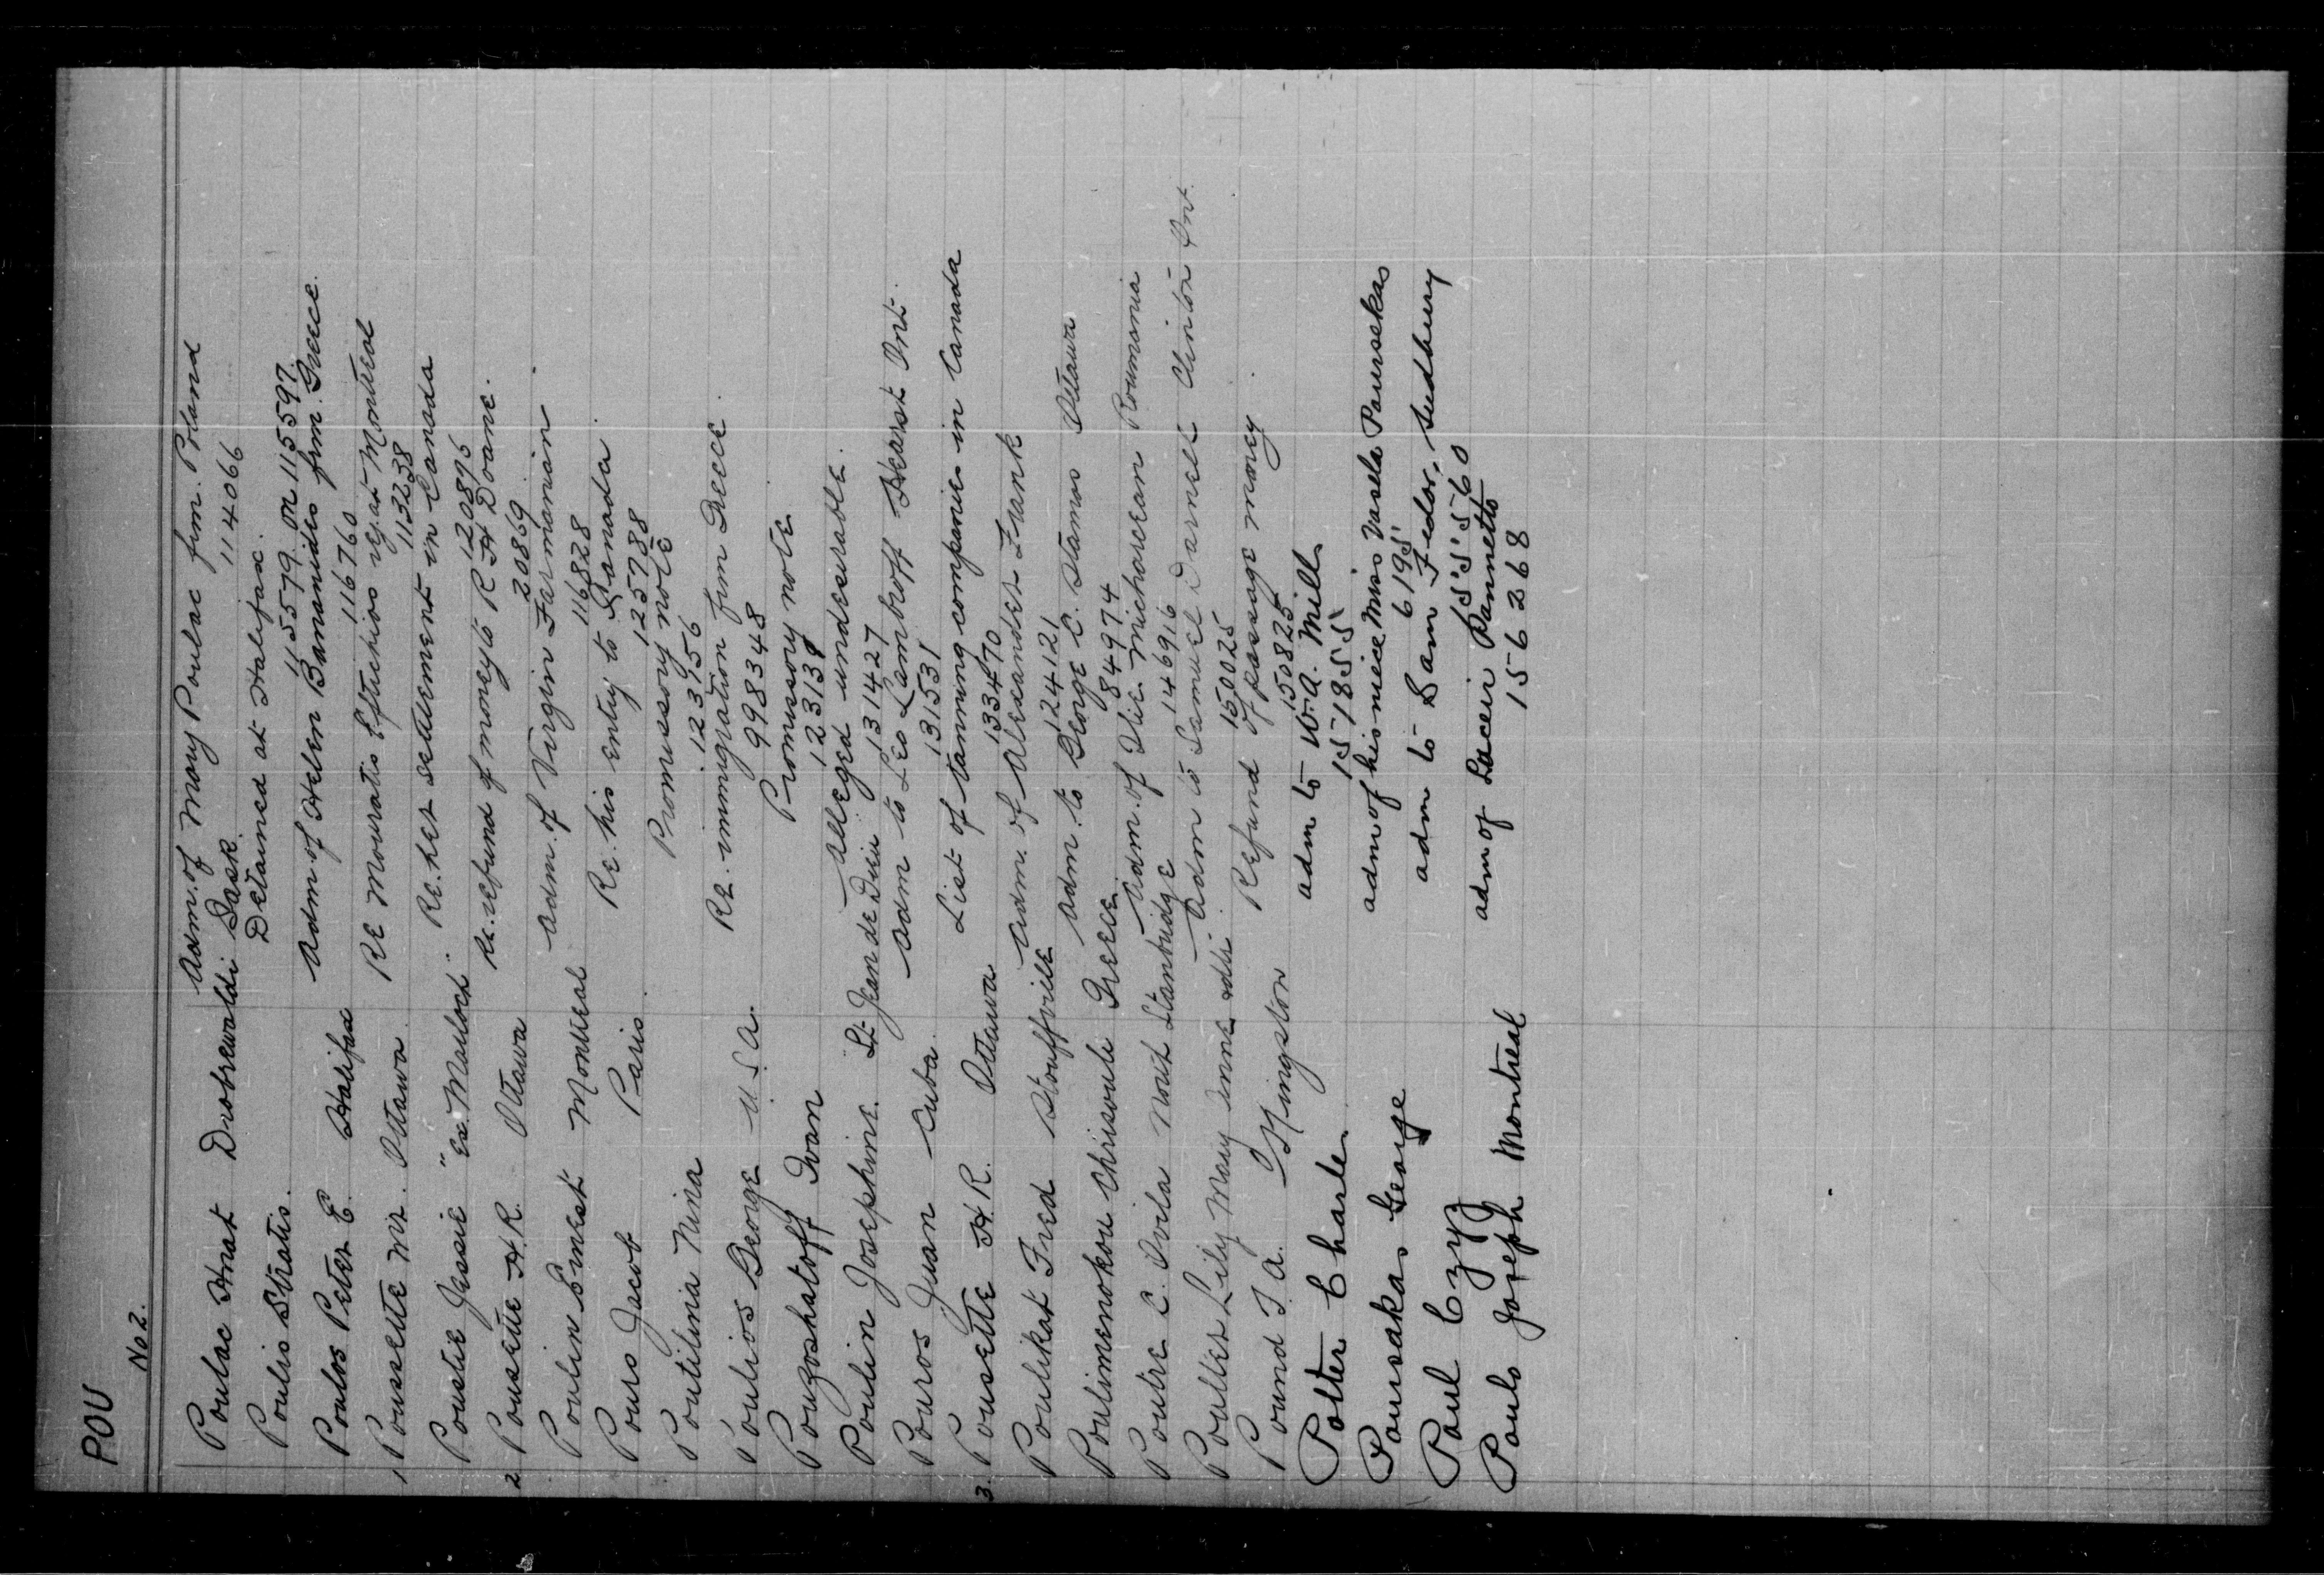 POU
No 2.
Poulac Hnat Drobrewaldi Sask. Adm. of Mary Poulac frm. Poland
114066
Poulis Stratis. Detained at Halifax.
115579 or 115597.
Poulos Peter E. Halifax Adm. of Helen Bananidis frm. Greece.
116760
1 Poussette Mr. Ottawa. Re Mouratis Eftichios Montreal
113238
Poustie Jessie "Ex. Maulock" Re. her settlement in Canada
120896
2 Pousette H. R. Ottawa Re. refund of money to R H Doane.
20869
Poulin Ernest Montreal Adm. of Virgin Farmanian.
116828
Pours Jacob Paris. Re. his entry to Canada.
125788
Poutilina Nina Promissory note
123956
Poulios George U.S.A. Re. immigration frm Greece.
998348
Pouzoshatoff Ivan Promissory note
123138
Poulin Josephine. St-Jean de Dieu Alleged undesirable.
131427
Pouros Juan Cuba. Adm to Leo Lambroff Hearst Ont.
131531
3. Pousette H. R. Ottawa List of tanning companies in Canada
133470
Poulikat Fred Stouffville Adm. of Alexander Frank
124121
Poulimenokou Chrisouli Greece. Adm. to George C. Stamos Ottawa
984974
Poutre C. Ovila Nout Stanbridge Adm. of Ilie Micharean Roumania
146916
Poulter Lily May Anne Adm to Samuel Darnell Clinton Ont.
150025
Pound T. A. Kingston Refund of passage money.
150825
Polter Charles adm to W. A. Mills
151855
Poursakas George adm of his niece Miss Vasela Pourskas
6195
Paul Czyz adm to Sam Fedor, Sudbury
155560
Pouls Joseph Montreal adm of Lucein Pannetto
156268